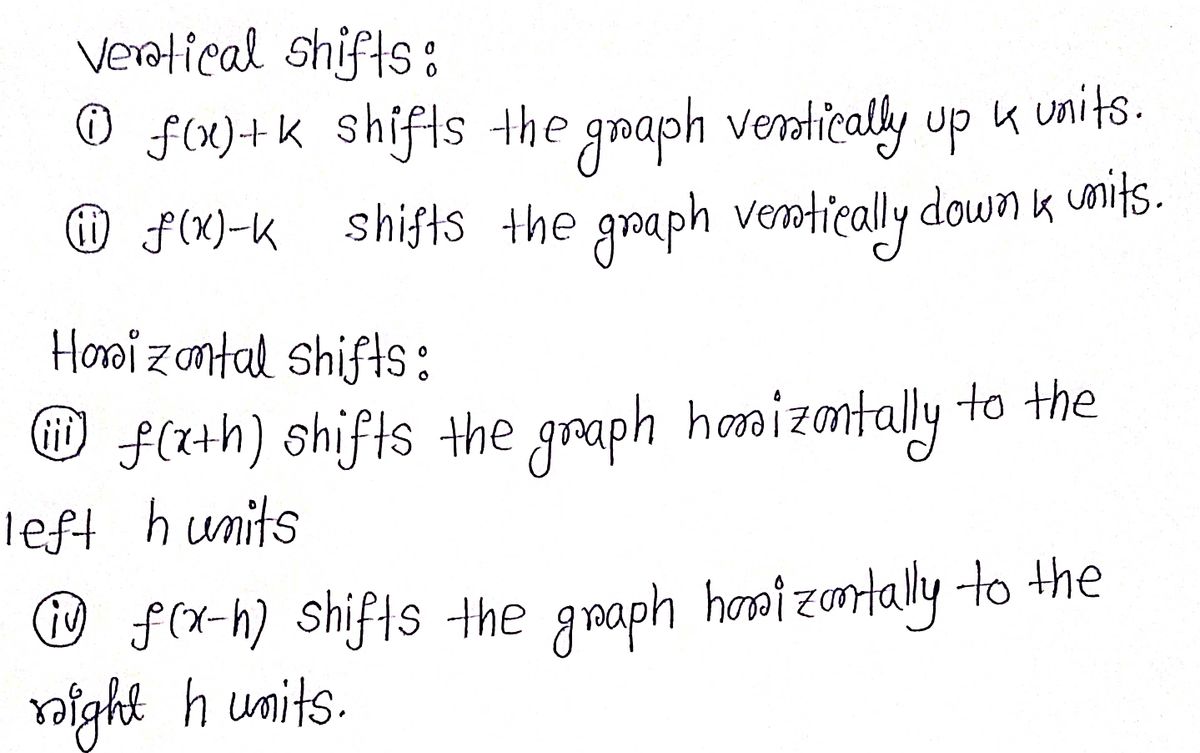 Vertical shifts:
(i) f(x)+k shifts the graph vertically up k units.
(ii) f(x)-k shifts the graph vertically down k units.
Horizontal shifts:
(iii) f(x+h) shifts the graph horizontally to the
left h units
(iv) f(x-h) shifts the graph horizontally to the
right h units.